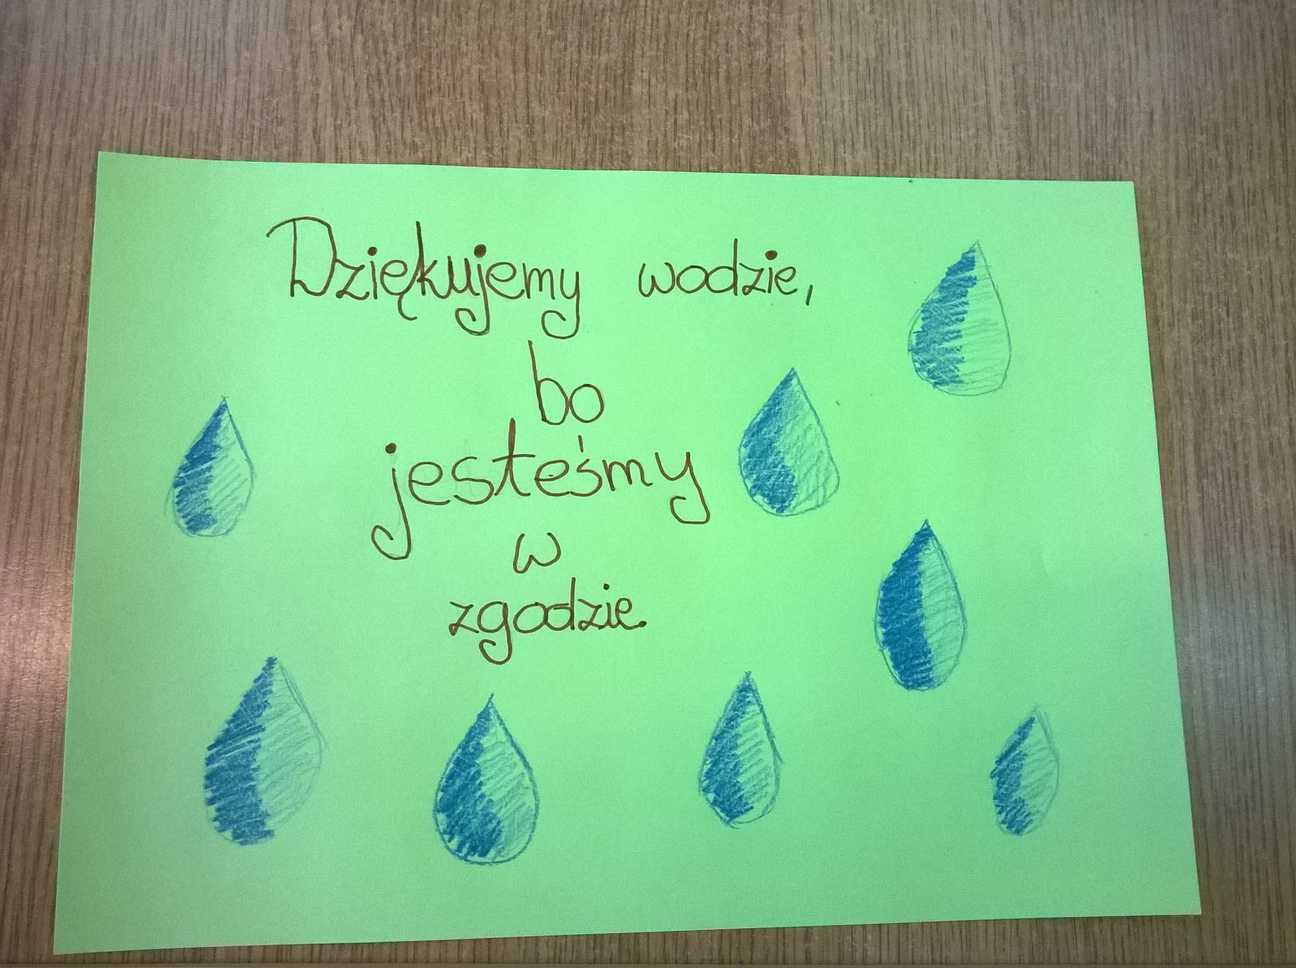 Dziękujemy wodzie,
bo
jesteśmy
w
zgodzie.